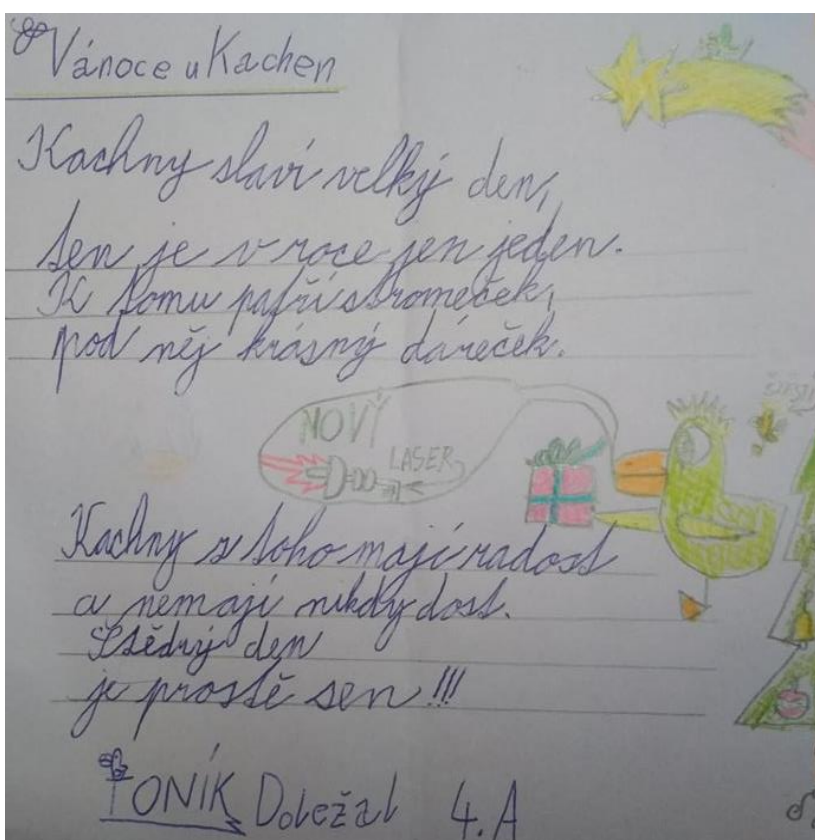 Vánoce u Kachen
Kachny slaví velký den,
ten je v roce jen jeden.
K tomu patří stromeček,
pod něj krásný dáreček.
NOVÝ
LASER
Kachny z toho mají radost
a nemají nikdy dost.
Štědrý den
je prostě sen !!!
TONÍK Doležal 4.A